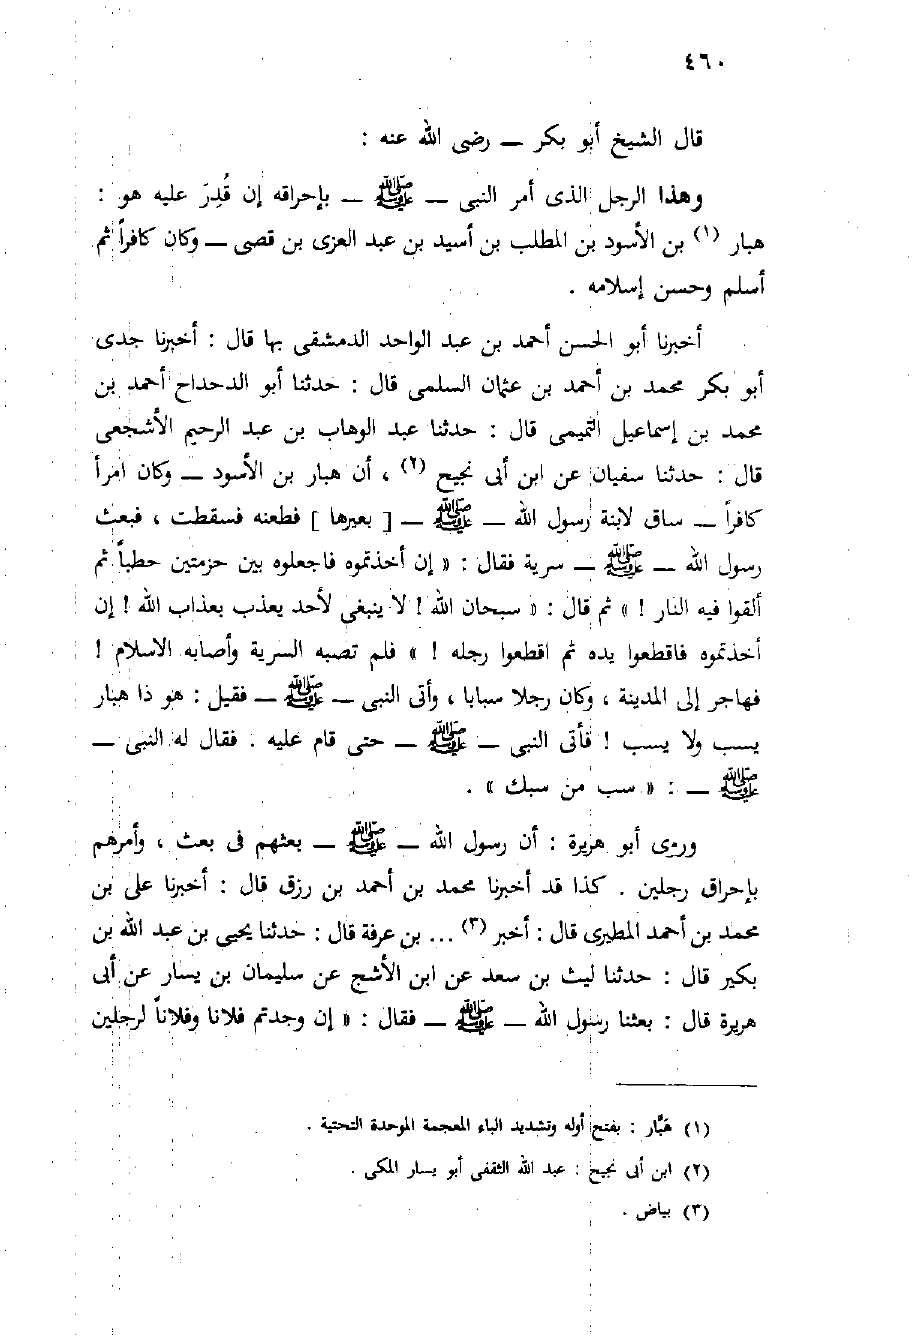 ٤٦٠
قال الشيخ أبو بكر — رضى الله عنه :
وهذا الرجل الذى أمر النبى — ﷺ — بإحراقه إن قُدِرَ عليه هو :
هبار (١) بن الأسود بن المطلب بن أسيد بن عبد العزى بن قصى — وكان كافراً ثم
أسلم وحسن إسلامه .
أخبرنا أبو الحسن أحمد بن عبد الواحد الدمشقى بها قال : أخبرنا جدى
أبو بكر محمد بن أحمد بن عثمان السلمى قال : حدثنا أبو الدحداح أحمد بن
محمد بن إسماعيل التميمى قال : حدثنا عبد الوهاب بن عبد الرحيم الأشجعى
قال : حدثنا سفيان عن ابن أبى نجيح (٢) ، أن هبار بن الأسود — وكان امرأ
كافراً — ساق لابنة رسول الله — ﷺ — [ بعيرها ] فطعنه فسقطت ، فبعث
رسول الله — ﷺ — سرية فقال : « إن أخذتموه فاجعلوه بين حزمتين حطباً ثم
ألقوا فيه النار ! » ثم قال : « سبحان الله ! لا ينبغى لأحد يعذب بعذاب الله ! إن
أخذتموه فاقطعوا يده ثم اقطعوا رجله ! » فلم تصبه السرية وأصابه الاسلام !
فهاجر إلى المدينة ، وكان رجلا سبابا ، وأتى النبى — ﷺ — فقيل : هو ذا هبار
يسب ولا يسب ! فأتى النبى — ﷺ — حتى قام عليه . فقال له النبى —
ﷺ — : « سب من سبك » .
وروى أبو هريرة : أن رسول الله — ﷺ — بعثهم فى بعث ، وأمرهم
بإحراق رجلين . كذا قد أخبرنا محمد بن أحمد بن رزق قال : أخبرنا على بن
محمد بن أحمد المطيرى قال : أخبر (٣) ... بن عرفة قال : حدثنا يحيى بن عبد الله بن
بكير قال : حدثنا ليث بن سعد عن ابن الأشج عن سليمان بن يسار عن أبى
هريرة قال : بعثنا رسول الله — ﷺ — فقال : « إن وجدتم فلانا وفلاناً لرجلين
(١) هَبَّار : بفتح أوله وتشديد الباء المعجمة الموحدة التحتية .
(٢) ابن أبى نجيح : عبد الله الثقفى أبو يسار المكى .
(٣) بياض .